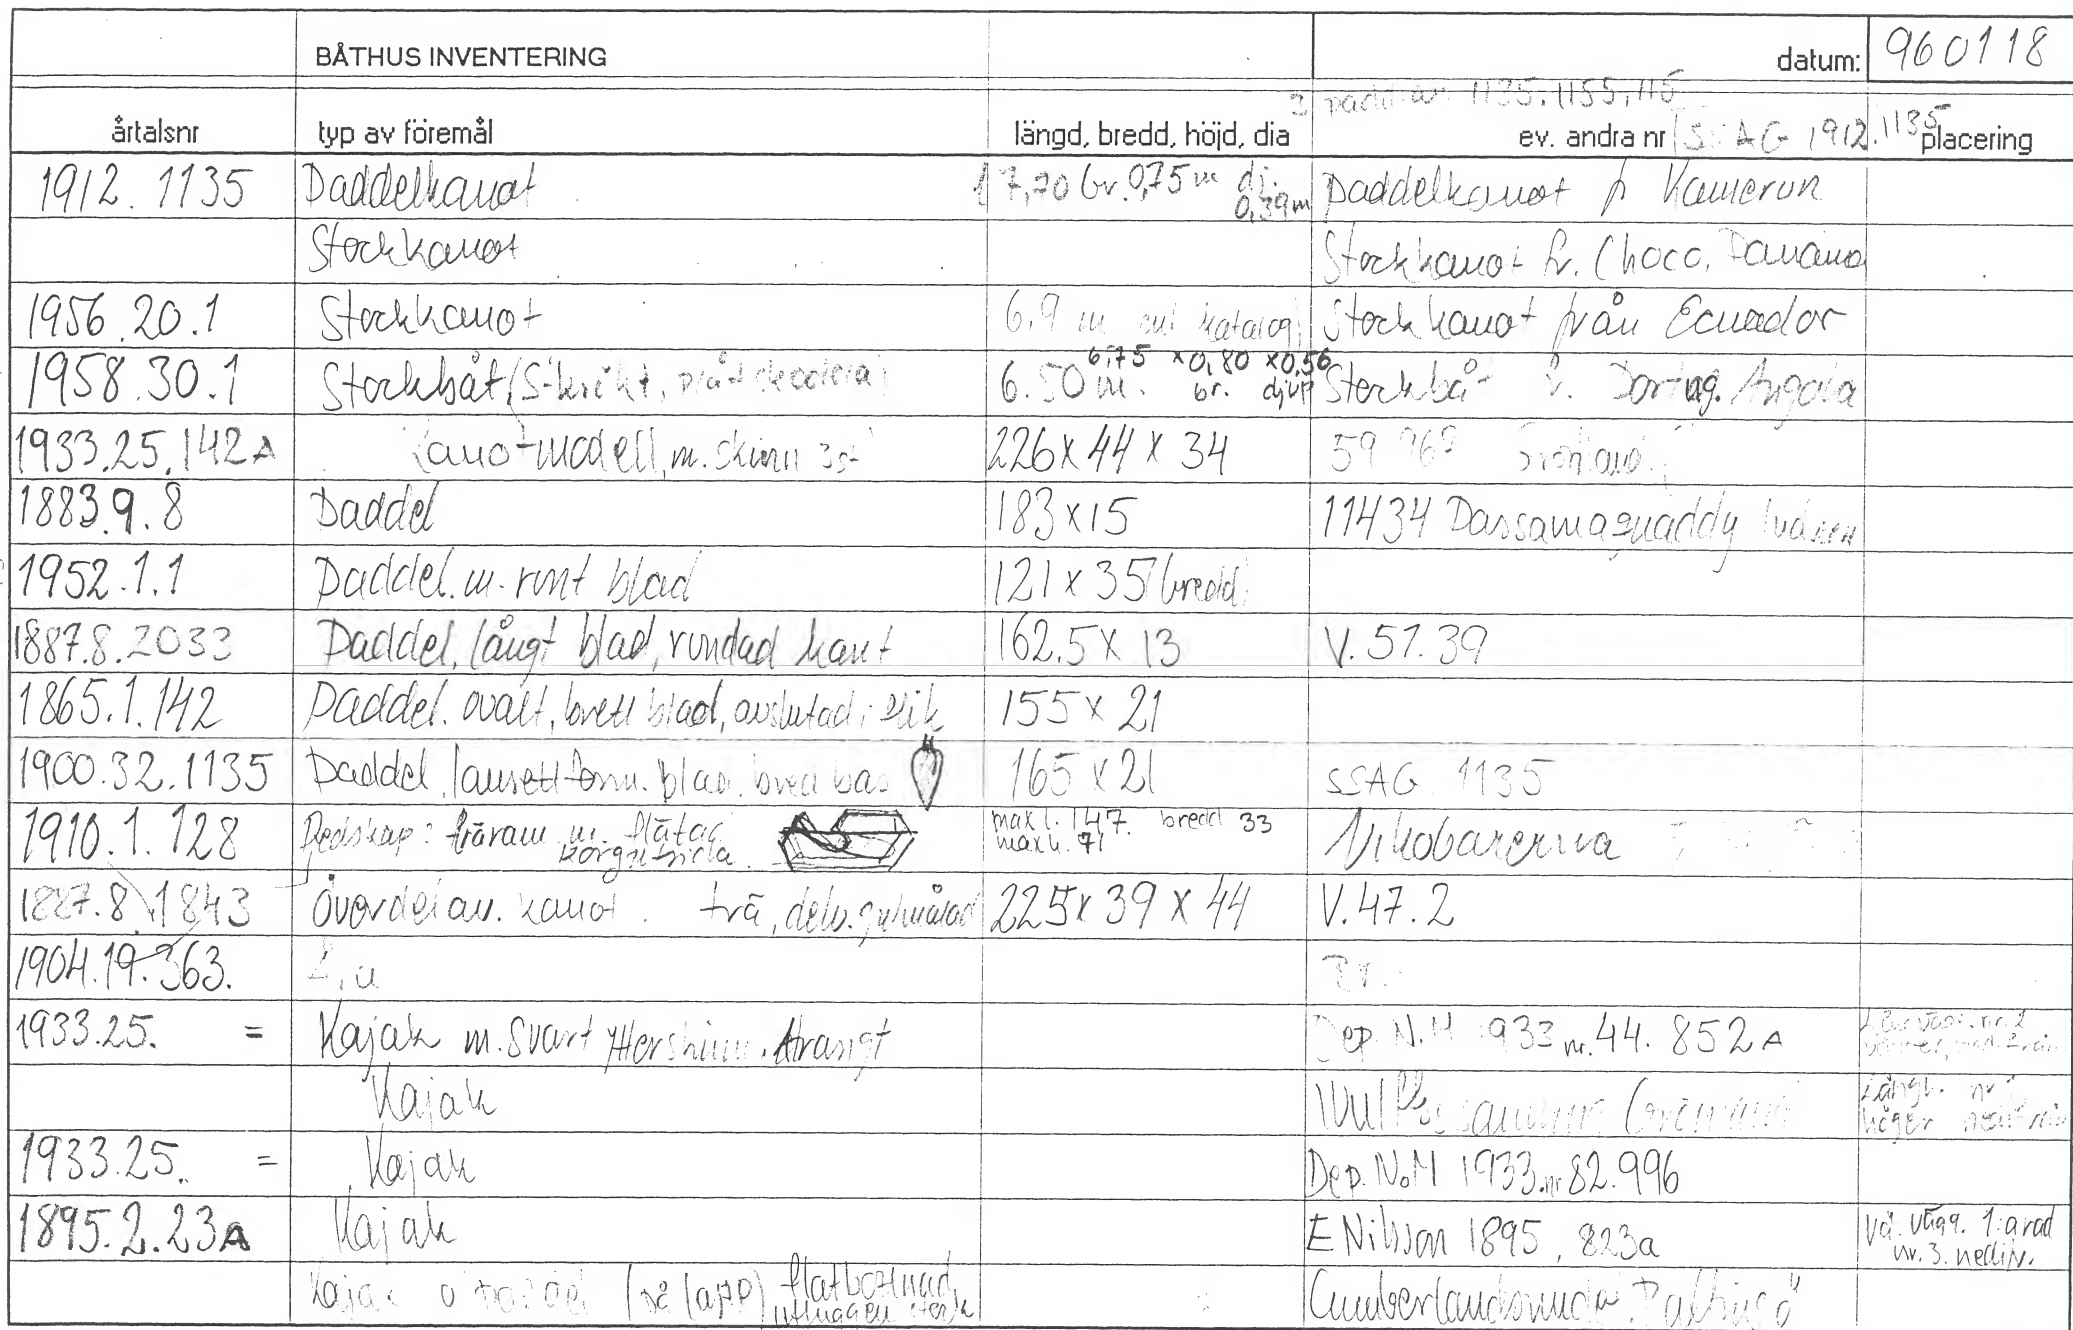 BÅTHUS INVENTERING datum: 960118
3 1135. 1155, 115
årtalsnr typ av föremål längd, bredd, höjd, dia ev. andra nr SSAG 1912.1135 placering
1912. 1135 Paddelkanot 7,20 br. 0,75 m dj. 0,39 m Paddelkanot fr Kamerun
Stockkanot Stockkanot fr. Choco, Panama
1956.20.1 Stockkanot 6.9 m enl katalog Stockkanot från Ecuador
1958.30.1 Stockbåt 6.50 m. 6,75 x 0,80 x 0,56 br. djup Stockbåt fr. Portug. Angola
1933.25.142A Kanotmodell, m. skinn 3st 226 x 44 x 34 59
1883.9.8 Paddel 183 x 15 11434 Passamaquaddy
1952.1.1 Paddel. m. runt blad 121 x 35 bredd
1887.8.2033 Paddel, långt blad, rundad kant 162.5 x 13 V. 51.39
1865.1.142 Paddel. ovalt, brett blad, avslutad i 155 x 21
1900.32.1135 Paddel, lansettform. blad, bred bas 165 x 21 SSAG 1135
1910.1.128 Redskap: träram m. flätad max l. 147. bredd 33 max h. 71 Nikobarerna
1887.8.1843 Överdel av. kanot. trä, delv. gulmålad 225 x 39 x 44 V.47.2
1904.19.363.
1933.25. = Kajak m. svart ytterskinn. Dep. N.M 1933 nr. 44. 852A
Kajak
höger
1933.25. = Kajak Dep. N.M 1933. nr 82.996
1895.2.23A Kajak E Nilsson 1895, 823a vä. vägg. 1:a rad nr. 3. nedifr.
Kajak flatbottnad,